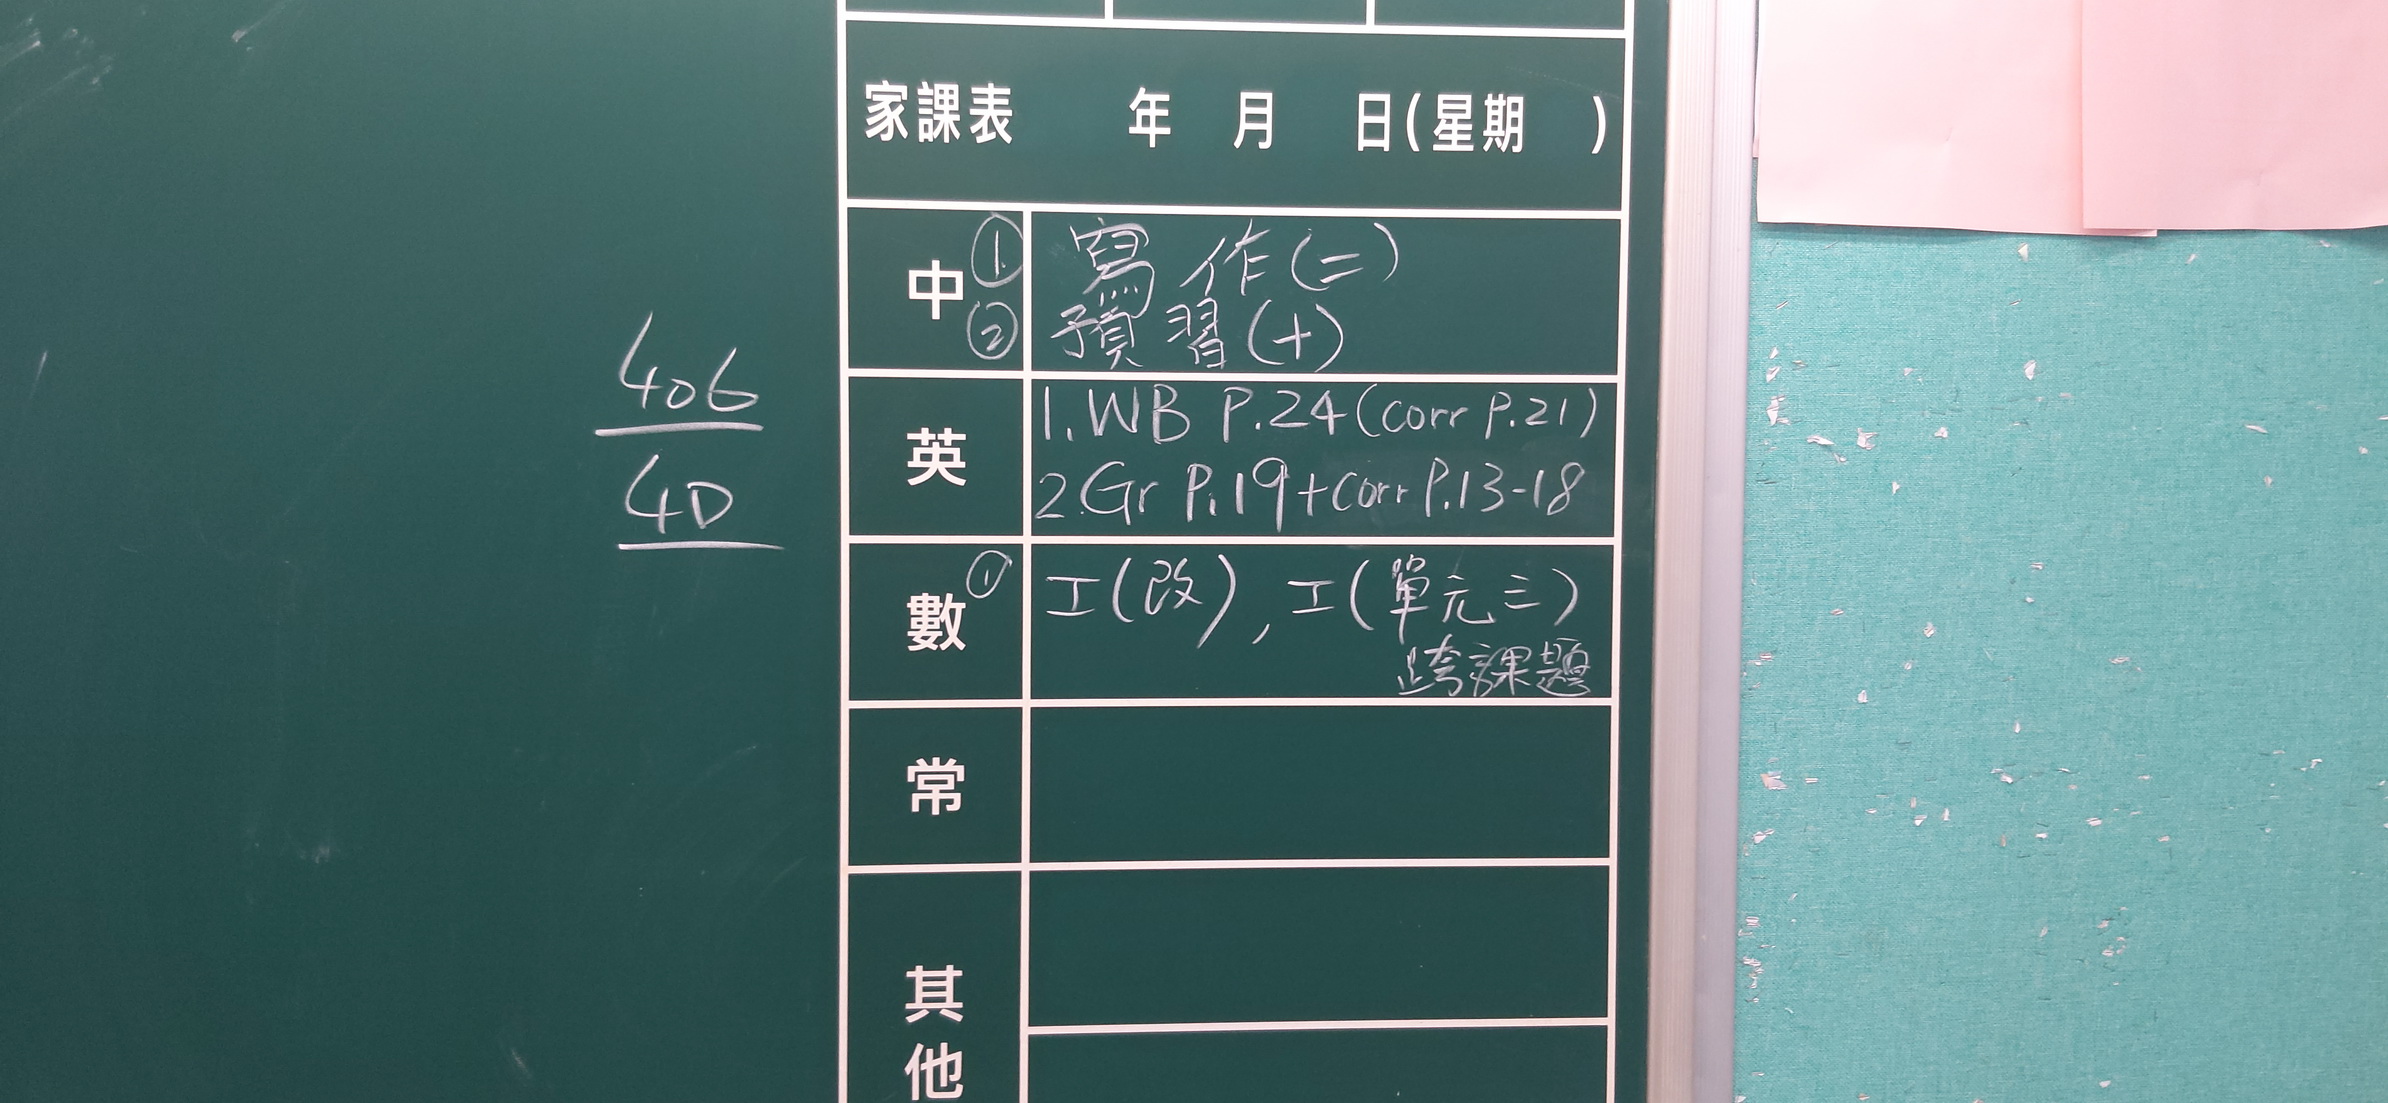 家課表 年 月 日(星期 )
中 ① 寫作(二)
② 預習(十)
英 1. WB P.24 (corr P.21)
2. Gr P.19 + corr P.13-18
數 ① 工(改), 工(單元三)
跨課題
常
其他
406
4D